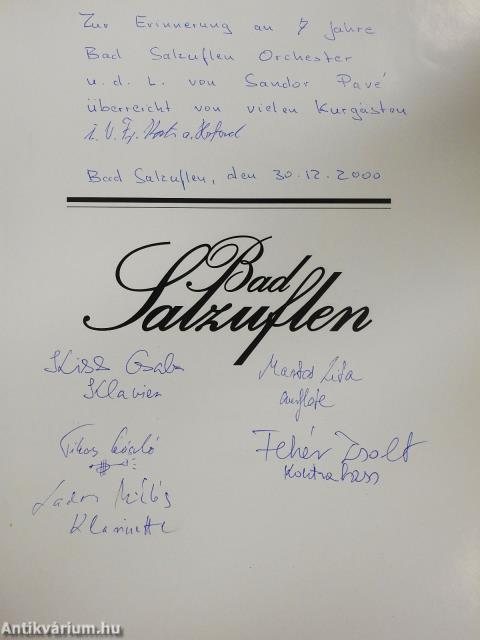 Zur Erinnerung an 7 Jahre
Bad Salzuflen Orchester
u.d.L. von Sandor Pavé
überreicht von vielen Kurgästen
i.V. Fr.
Bad Salzuflen, den 30.12.2000
Bad
Salzuflen
Kiss Csaba
Klavier
Rita
Tikos László
Fehér Zsolt
Kontrabass
Miklós
Klarinette
Antikvárium.hu
Antikvárium.hu